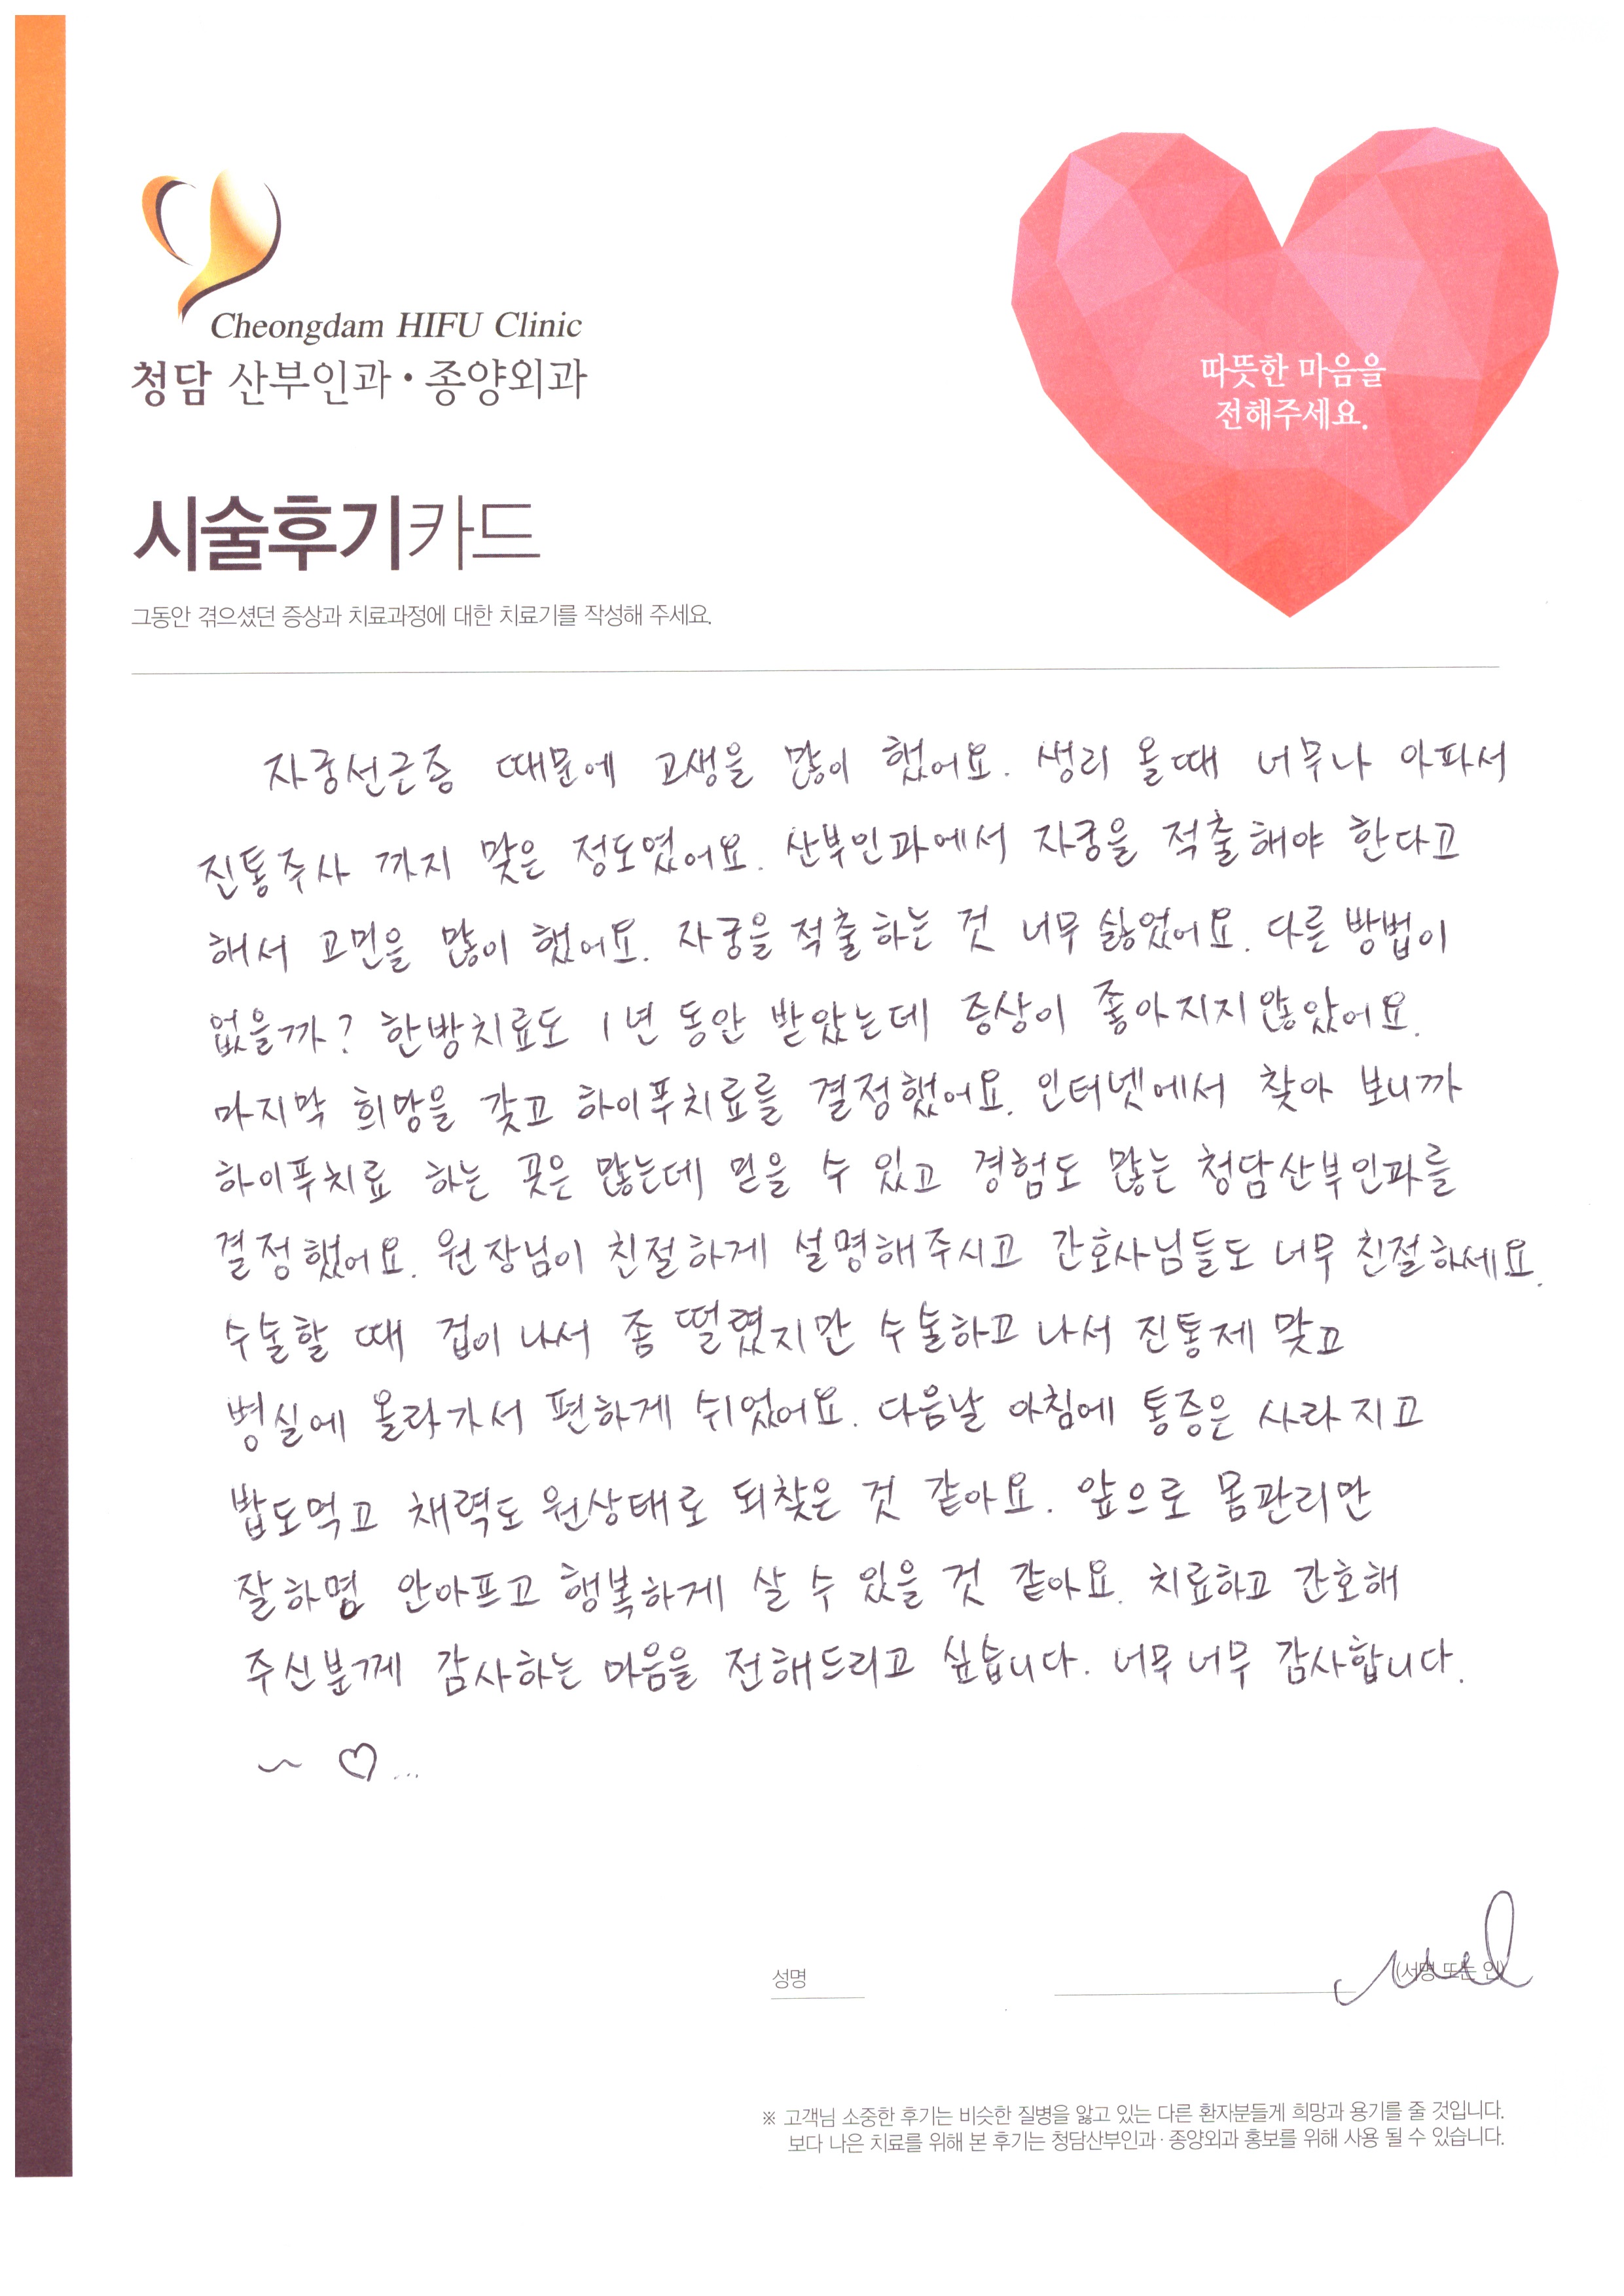 Cheongdam HIFU Clinic
청담 산부인과·종양외과
따뜻한 마음을
전해주세요.
시술후기카드
그동안 겪으셨던 증상과 치료과정에 대한 치료기를 작성해 주세요.
자궁선근증 때문에 고생을 많이 했어요. 생리 올때 너무나 아파서
진통주사 까지 맞은 정도였어요. 산부인과에서 자궁을 적출해야 한다고
해서 고민을 많이 했어요. 자궁을 적출하는 것 너무 싫었어요. 다른 방법이
없을까? 한방치료도 1년 동안 받았는데 증상이 좋아지지않았어요.
마지막 희망을 갖고 하이푸치료를 결정했어요. 인터넷에서 찾아 보니까
하이푸치료 하는 곳은 많는데 믿을 수 있고 경험도 많는 청담산부인과를
결정했어요. 원장님이 친절하게 설명해주시고 간호사님들도 너무 친절하세요.
수술할 때 겁이 나서 좀 떨렸지만 수술하고 나서 진통제 맞고
병실에 올라가서 편하게 쉬었어요. 다음날 아침에 통증은 사라지고
밥도먹고 채력도 원상태로 되찾은 것 같아요. 앞으로 몸관리만
잘하면 안아프고 행복하게 살 수 있을 것 같아요. 치료하고 간호해
주신분께 감사하는 마음을 전해드리고 싶습니다. 너무 너무 감사합니다.
~ ♡...
성명 (서명 또는 인)
※ 고객님 소중한 후기는 비슷한 질병을 앓고 있는 다른 환자분들게 희망과 용기를 줄 것입니다.
보다 나은 치료를 위해 본 후기는 청담산부인과·종양외과 홍보를 위해 사용 될 수 있습니다.